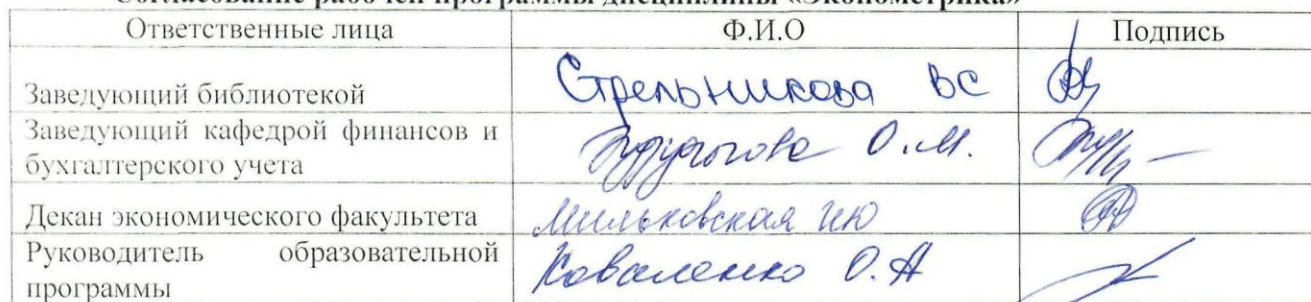 Согласование рабочей программы дисциплины «Эконометрика»
Ответственные лица Ф.И.О Подпись
Заведующий библиотекой Стрельникова ВС
Заведующий кафедрой финансов и
бухгалтерского учета О.М.
Декан экономического факультета Мильковская ИЮ
Руководитель образовательной
программы Коваленко О.А